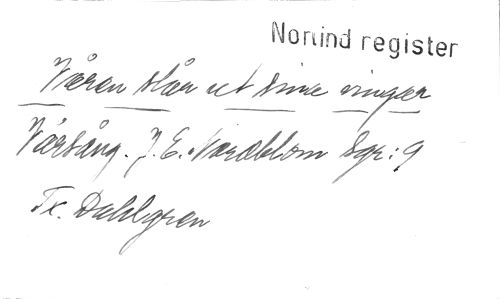 Norlind register
Våren slår ut sina vingar
Vårsång. J. E. Nordblom Sgr: 9
Tx. Dahlgren